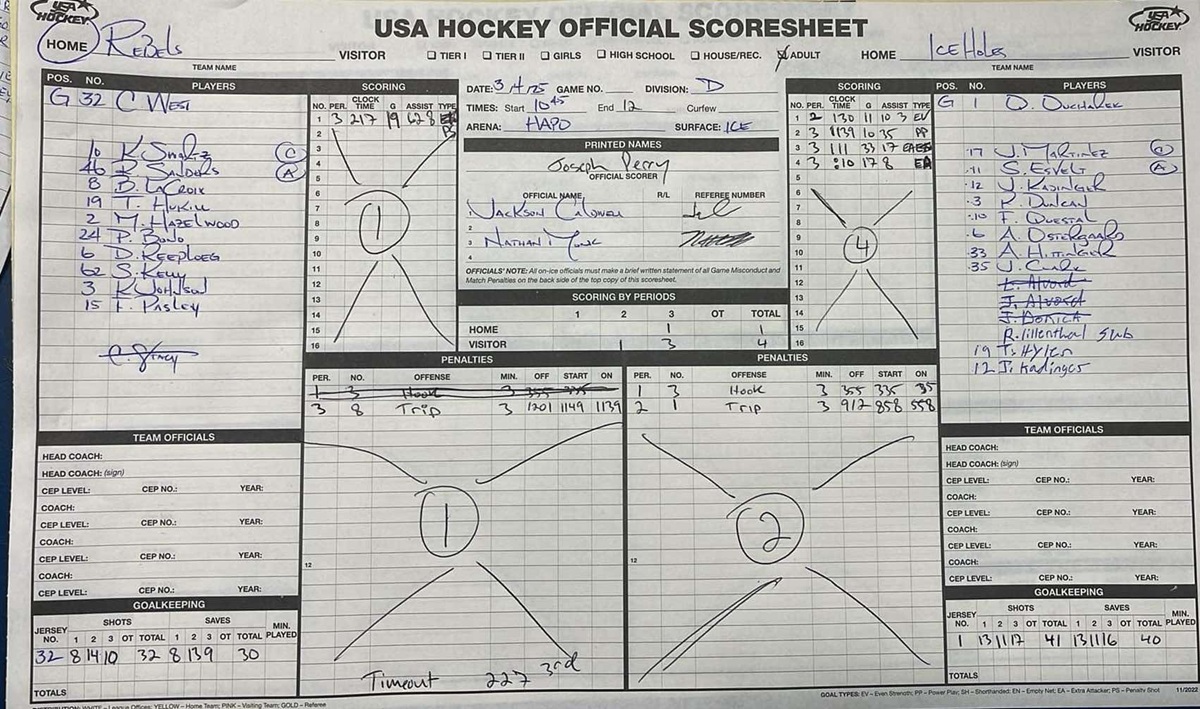 USA HOCKEY
USA HOCKEY OFFICIAL SCORESHEET
USA HOCKEY
HOME REBELS VISITOR
TEAM NAME
☐ TIER I ☐ TIER II ☐ GIRLS ☐ HIGH SCHOOL ☐ HOUSE/REC. ☑ ADULT
HOME ICE HOLES VISITOR
TEAM NAME
POS. NO. PLAYERS
G 32 C WEST
10 K. SWARTZ C
46 R SANDERS A
8 B. LACROIX
19 T. HUKILL
2 M. HAZELWOOD
24 P. BONO
6 D. KEEPLOEG
62 S. KELLY
3 K JOHNSON
15 F. PASLEY
SCORING
NO. PER. CLOCK TIME G ASSIST TYPE
1 3 217 19 6 28
2
3
4
5
6
7
8
9
10
11
12
13
14
15
16
1
DATE: 3/4/25 GAME NO. DIVISION: D
TIMES: Start 10 45 End 12 Curfew
ARENA: HAPO SURFACE: ICE
PRINTED NAMES
Joseph Perry
OFFICIAL SCORER
OFFICIAL NAME R/L REFEREE NUMBER
JACKSON CALDWELL
2
3 NATHAN
4
OFFICIALS' NOTE: All on-ice officials must make a brief written statement of all Game Misconduct and
Match Penalties on the back side of the top copy of this scoresheet.
SCORING BY PERIODS
1 2 3 OT TOTAL
HOME 1 1
VISITOR 1 3 4
SCORING
NO. PER. CLOCK TIME G ASSIST TYPE
1 2 130 11 10 3 EV
2 3 1139 10 35 PP
3 3 111 33 17
4 3 :10 17 8 EA
5
6
7
8
9
10
11
12
13
14
15
16
4
POS. NO. PLAYERS
G 1 D. OUCHAREK
17 J. MARTINEZ C
11 S. ESVELT A
12 J. KADINGER
3 K. DUNCAN
10 F. QUESTAL
6 A. OSTERGAARD
33 A. HITTINGER
35 J. CLARK
L. Alvord
J. Alvord
J. DORICH
R. lillenthal Sub
19 T. Hyler
12 J. Kadinger
PENALTIES
PER. NO. OFFENSE MIN. OFF START ON
1 3 Hook 3 355 335
3 8 Trip 3 1201 1149 1139
12
1
Timeout 227 3rd
PENALTIES
PER. NO. OFFENSE MIN. OFF START ON
1 3 Hook 3 355 335 35
2 1 Trip 3 912 858 558
12
2
TEAM OFFICIALS
HEAD COACH:
HEAD COACH: (sign)
CEP LEVEL: CEP NO.: YEAR:
COACH:
CEP LEVEL: CEP NO.: YEAR:
COACH:
CEP LEVEL: CEP NO.: YEAR:
COACH:
CEP LEVEL: CEP NO.: YEAR:
GOALKEEPING
SHOTS SAVES
JERSEY NO. 1 2 3 OT TOTAL 1 2 3 OT TOTAL MIN. PLAYED
32 8 14 10 32 8 13 9 30
TOTALS
TEAM OFFICIALS
HEAD COACH:
HEAD COACH: (sign)
CEP LEVEL: CEP NO.: YEAR:
COACH:
CEP LEVEL: CEP NO.: YEAR:
COACH:
CEP LEVEL: CEP NO.: YEAR:
COACH:
CEP LEVEL: CEP NO.: YEAR:
GOALKEEPING
SHOTS SAVES
JERSEY NO. 1 2 3 OT TOTAL 1 2 3 OT TOTAL MIN. PLAYED
1 13 11 17 41 13 11 16 40
TOTALS
GOAL TYPES: EV – Even Strength; PP – Power Play; SH – Shorthanded; EN – Empty Net; EA – Extra Attacker; PS – Penalty Shot 11/2022
DISTRIBUTION: WHITE – League Offices; YELLOW – Home Team; PINK – Visiting Team; GOLD – Referee